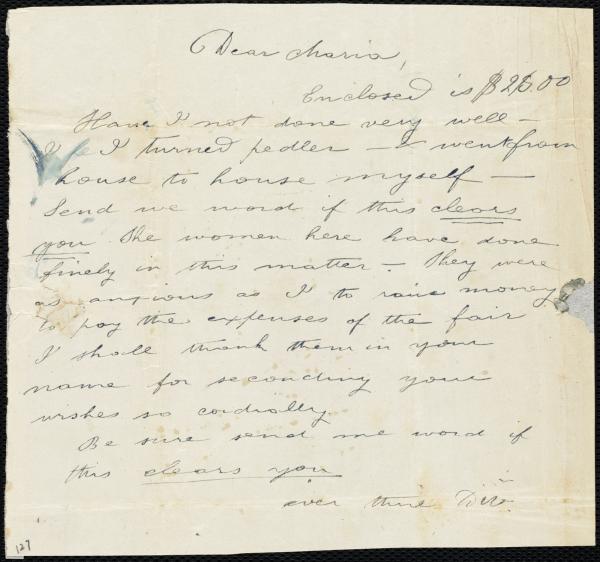 Dear Maria,
Enclosed is $26.00
Have I not done very well —
I turned pedler — & went from
house to house myself —
Send me word if this clears
you. The women here have done
finely in this matter — They were
as anxious as I to raise money
to pay the expenses of the fair
I shall thank them in your
name for seconding your
wishes so cordially
Be sure send me word if
this clears you
ever thine
127